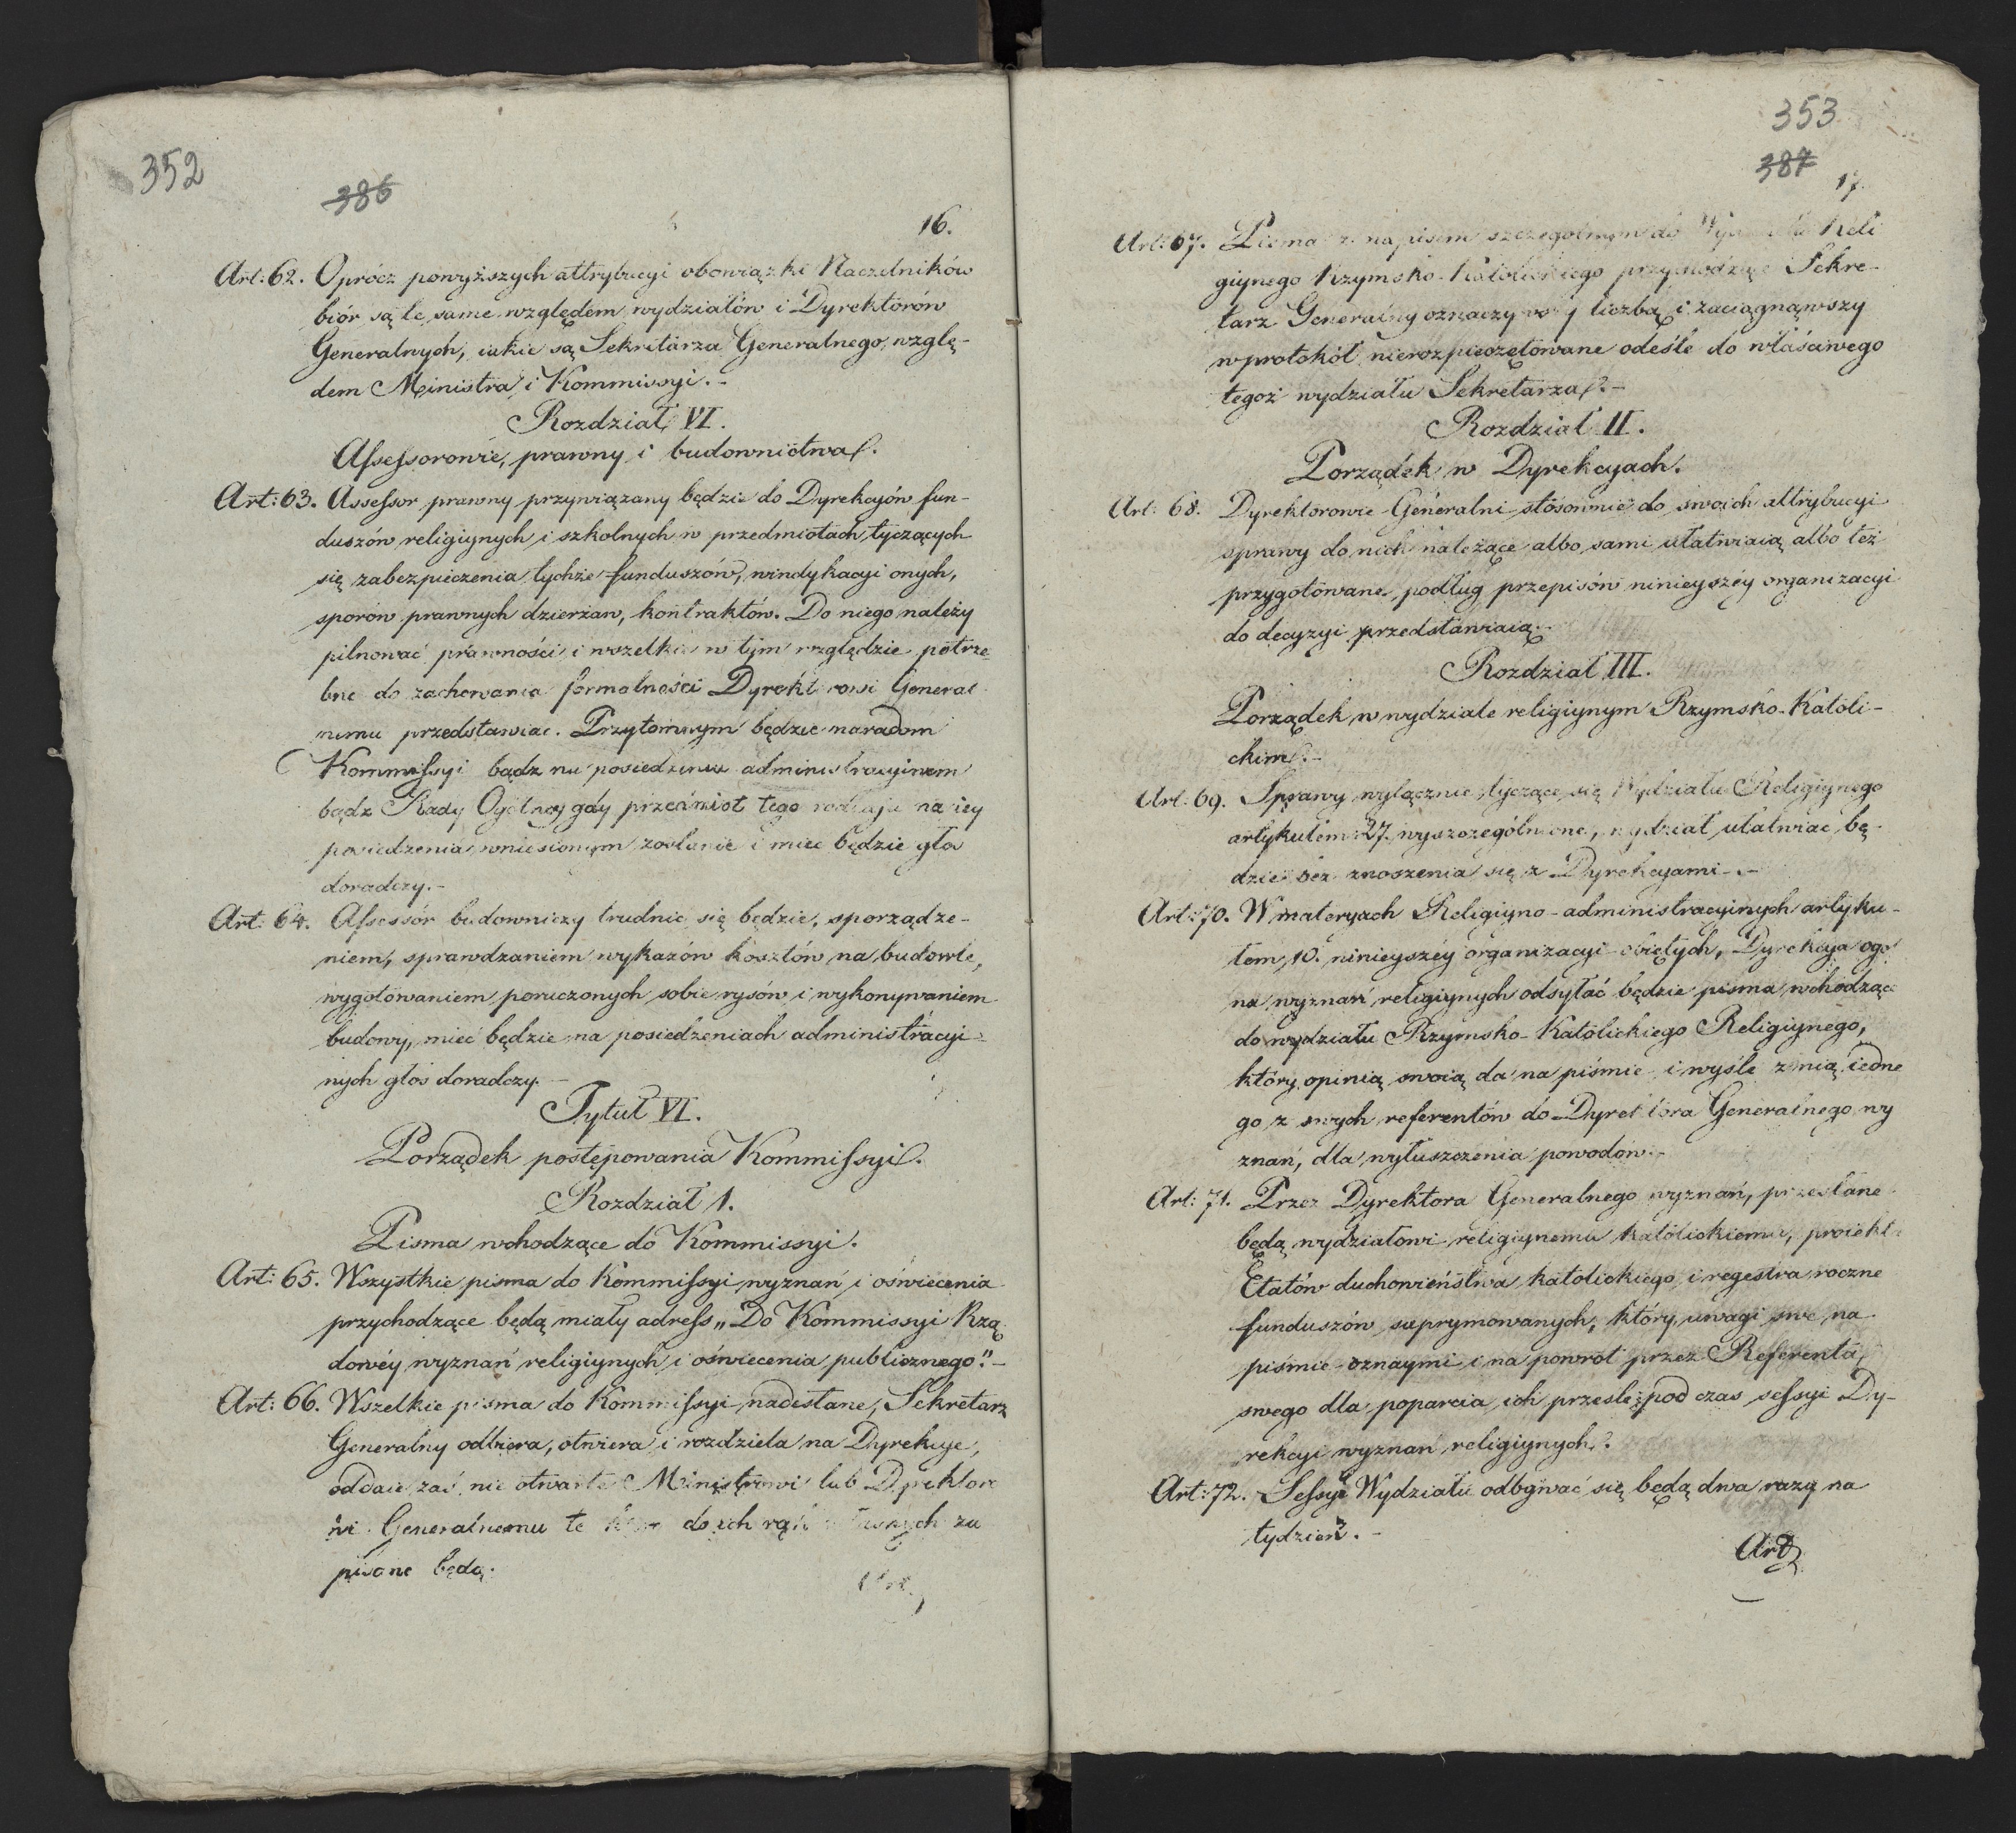 352
386
16.
Art: 62. Oprócz powyższych attrybucyi obowiązki Naczelników
biór są te same względem wydziałów i Dyrektorów
Generalnych, iakie są Sekretarza Generalnego, wzglę-
dem Ministra i Kommissyi.-
Rozdział VI.
Assessorowie, prawny i budownictwa.
Art: 63. Assessor prawny przywiązany będzie do Dyrekcyów fun-
duszów religiynych i szkolnych w przedmiotach tyczących
się zabezpieczenia tychże funduszów, windykacyi onych,
sporów prawnych dzierżaw, kontraktów. Do niego należy
pilnować prawności i wszelkie w tym względzie potrze-
bne do zachowania formalności Dyrektorowi General
nemu przedstawiac. Przytomnym będzie naradom
Kommissyi bądz na posiedzeniu administracyinem
bądz Rady Ogólney gdy przedmiot tego rodzaju na iey
posiedzenia wniesionym zostanie i miec będzie głos
doradczy.-
Art: 64. Assessór budowniczy trudnic się będzie, sporządze-
niem, sprawdzaniem wykazów kosztów na budowle,
wygotowaniem poruczonych sobie rysów i wykonywaniem
budowy, mieć będzie na posiedzeniach administracyi-
nych głos doradczy.-
Tytuł VI.
Porządek postępowania Kommissyi.
Rozdział 1.
Pisma wchodzące do Kommissyi.
Art: 65. Wszystkie pisma do Kommissyi wyznań i oświecenia
przychodzące będą miały adress „Do Kommissyi Rzą-
dowéy wyznań religiynych i oświecenia publicznego."-
Art: 66. Wszelkie pisma do Kommissyi nadesłane, Sekretarz
Generalny odbiera, otwiera i rozdziela na Dyrekcye,
oddaie zaś nie otwarte Ministrowi lub Dyrektoro
wi Generalnemu te do ich rąk własnych za
pisane będą.
Art.
353
387
17.
Art: 67. Pisma z napisem szczególnym do Wydziału Reli
giynego Rzymsko-Katolickiego przychodzące Sekre-
tarz Generalny oznaczywszy liczbą i zaciągnąwszy
w protokół nierozpieczętowane odeśle do właściwego
tegoż wydziału Sekretarza.-
Rozdział II.
Porządek w Dyrekcyach.
Art: 68. Dyrektorowie Generalni stósownie do swoich attrybucyi
sprawy do nich należące albo sami ułatwiaią albo też
przygotowane, podług przepisów ninieyszéy organizacyi
do decyzyi przedstawiaią.
Rozdział III.
Porządek w wydziale religiynym Rzymsko-Katoli-
ckim.-
Art: 69. Sprawy wyłącznie tyczące się Wydziału Religiynego
artykułem 27. wyszczególnione, wydział ułatwiać bę-
dzie bez znoszenia się z Dyrekcyami.-
Art: 70. W materyach Religiyno-administracyinych artyku-
łem 10. ninieyszéy organizacyi obiętych, Dyrekcya ogó
na wyznań religiynych odsyłać będzie pisma wchodzące
do wydziału Rzymsko-Katolickiego Religiynego,
który opinią swoią da na piśmie i wyśle z nią iedne
go z swych referentów do Dyrektora Generalnego wy
znań, dla wyłuszczenia powodów.-
Art: 71. Przez Dyrektora Generalnego wyznań, przesłane
będą wydziałowi religiynemu katolickiemu, proiekt
Etatów duchowieństwa katolickiego i regestra roczne
funduszów suprymowanych, który uwagi swe na
piśmie oznaymi i na powrót przez Referenta
swego dla poparcia ich prześle pod czas sessyi Dy-
rekcyi wyznań religiynych.
Art: 72. Sessye Wydziału odbywać się będą dwa razy na
tydzień.-
Art